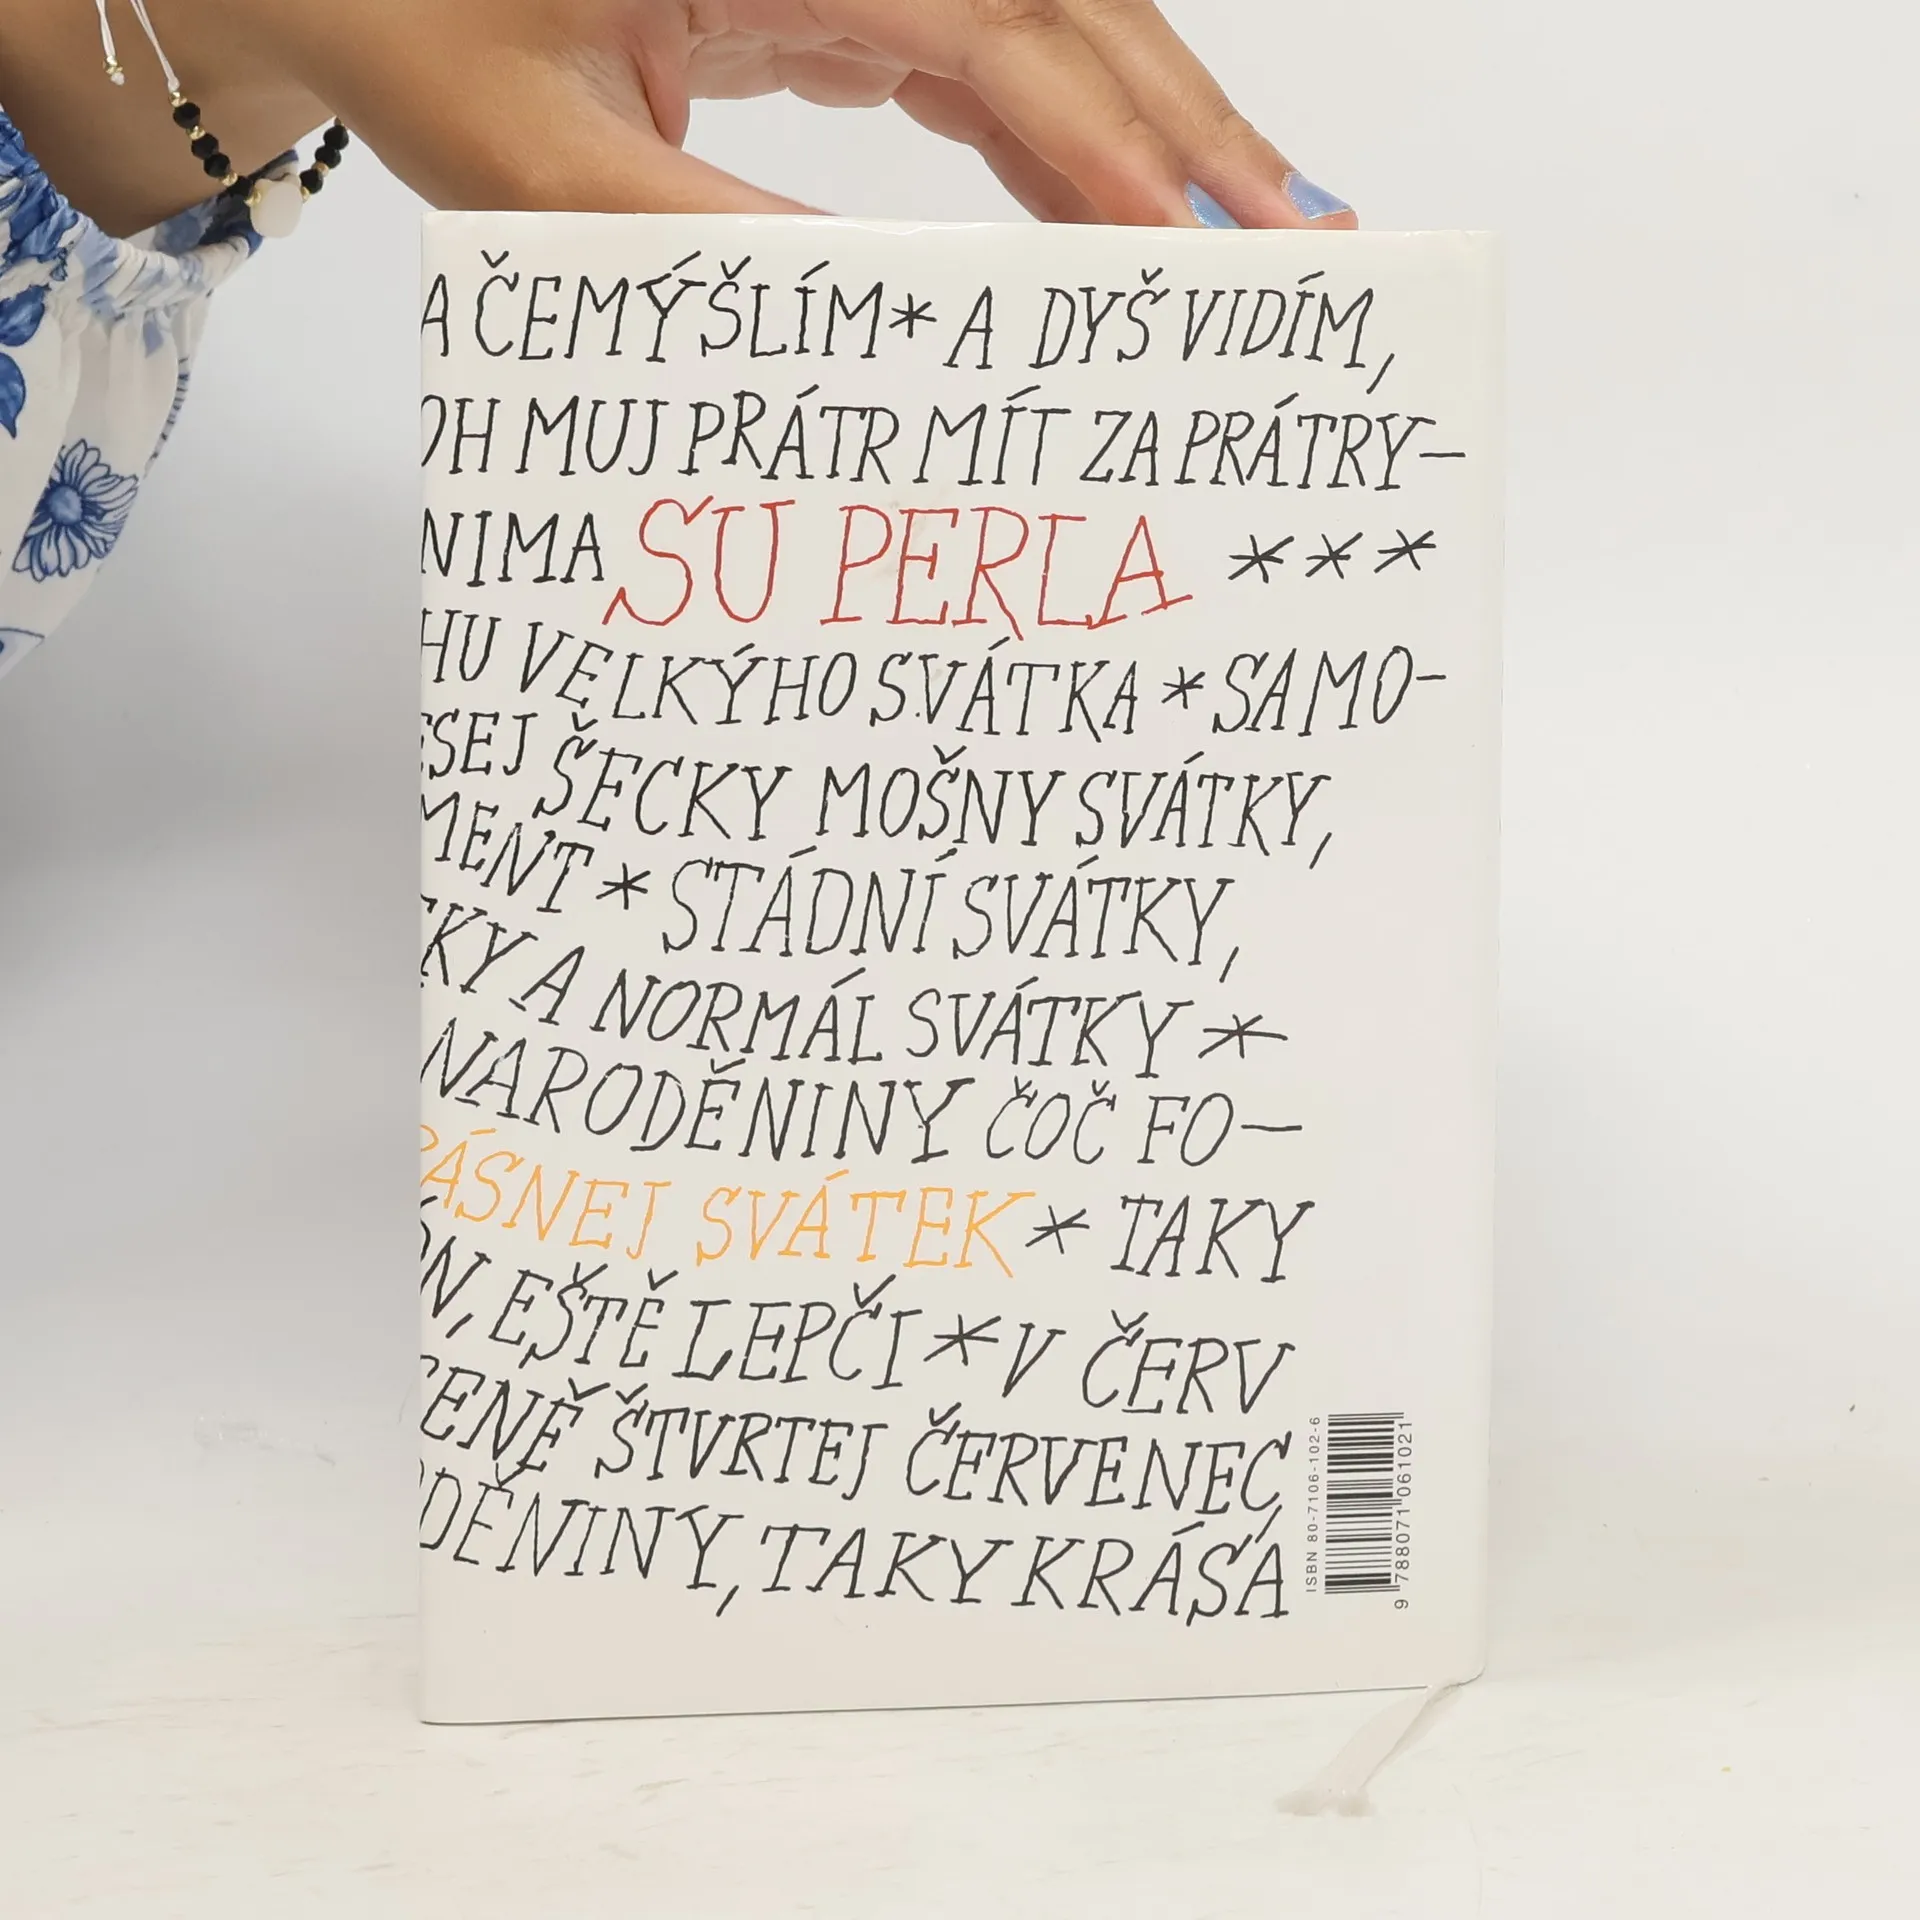 A ČEMÝŠLÍM * A DYŠ VIDÍM,
OH MUJ PRÁTR MÍT ZA PRÁTRY-
NIMA SU PERLA * * *
HU VELKÝHO SVÁTKA * SAMO-
ESEJ ŠECKY MOŠNY SVÁTKY,
MENT * STÁDNÍ SVÁTKY,
KY A NORMÁL SVÁTKY *
NARODĚNINY ČOČ FO-
RÁSNEJ SVÁTEK * TAKY
N, EŠTĚ LEPČI * V ČERV
CENĚ ŠTVRTEJ ČERVENEC,
ODĚNINY, TAKY KRÁSÁ
ISBN 80-7106-102-6
9 788071 061021